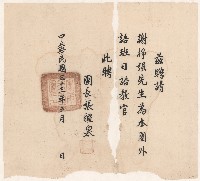 茲聘請
謝掙強先生為本團外
語班日語教官
此聘
團長張
中華民國三十一年 月 日